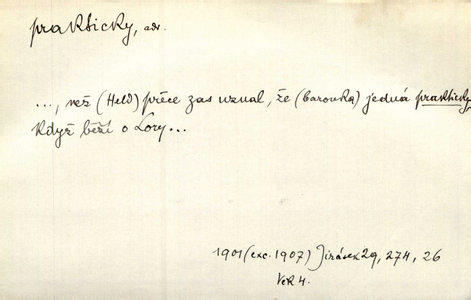 prakticky, adv.
..., než (Held) přece zas uznal, že (baronka) jedná prakticky,
když běží o Lory...
1901 (exc. 1907) Jirásek 29, 274, 26